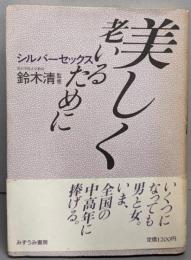 美しく
老いる
ために
シルバーセックス
鈴木清 監修
いくつに
なっても
男と女。
いま、
全国の
中高年に
捧げる。
みずうみ書房
定価1200円